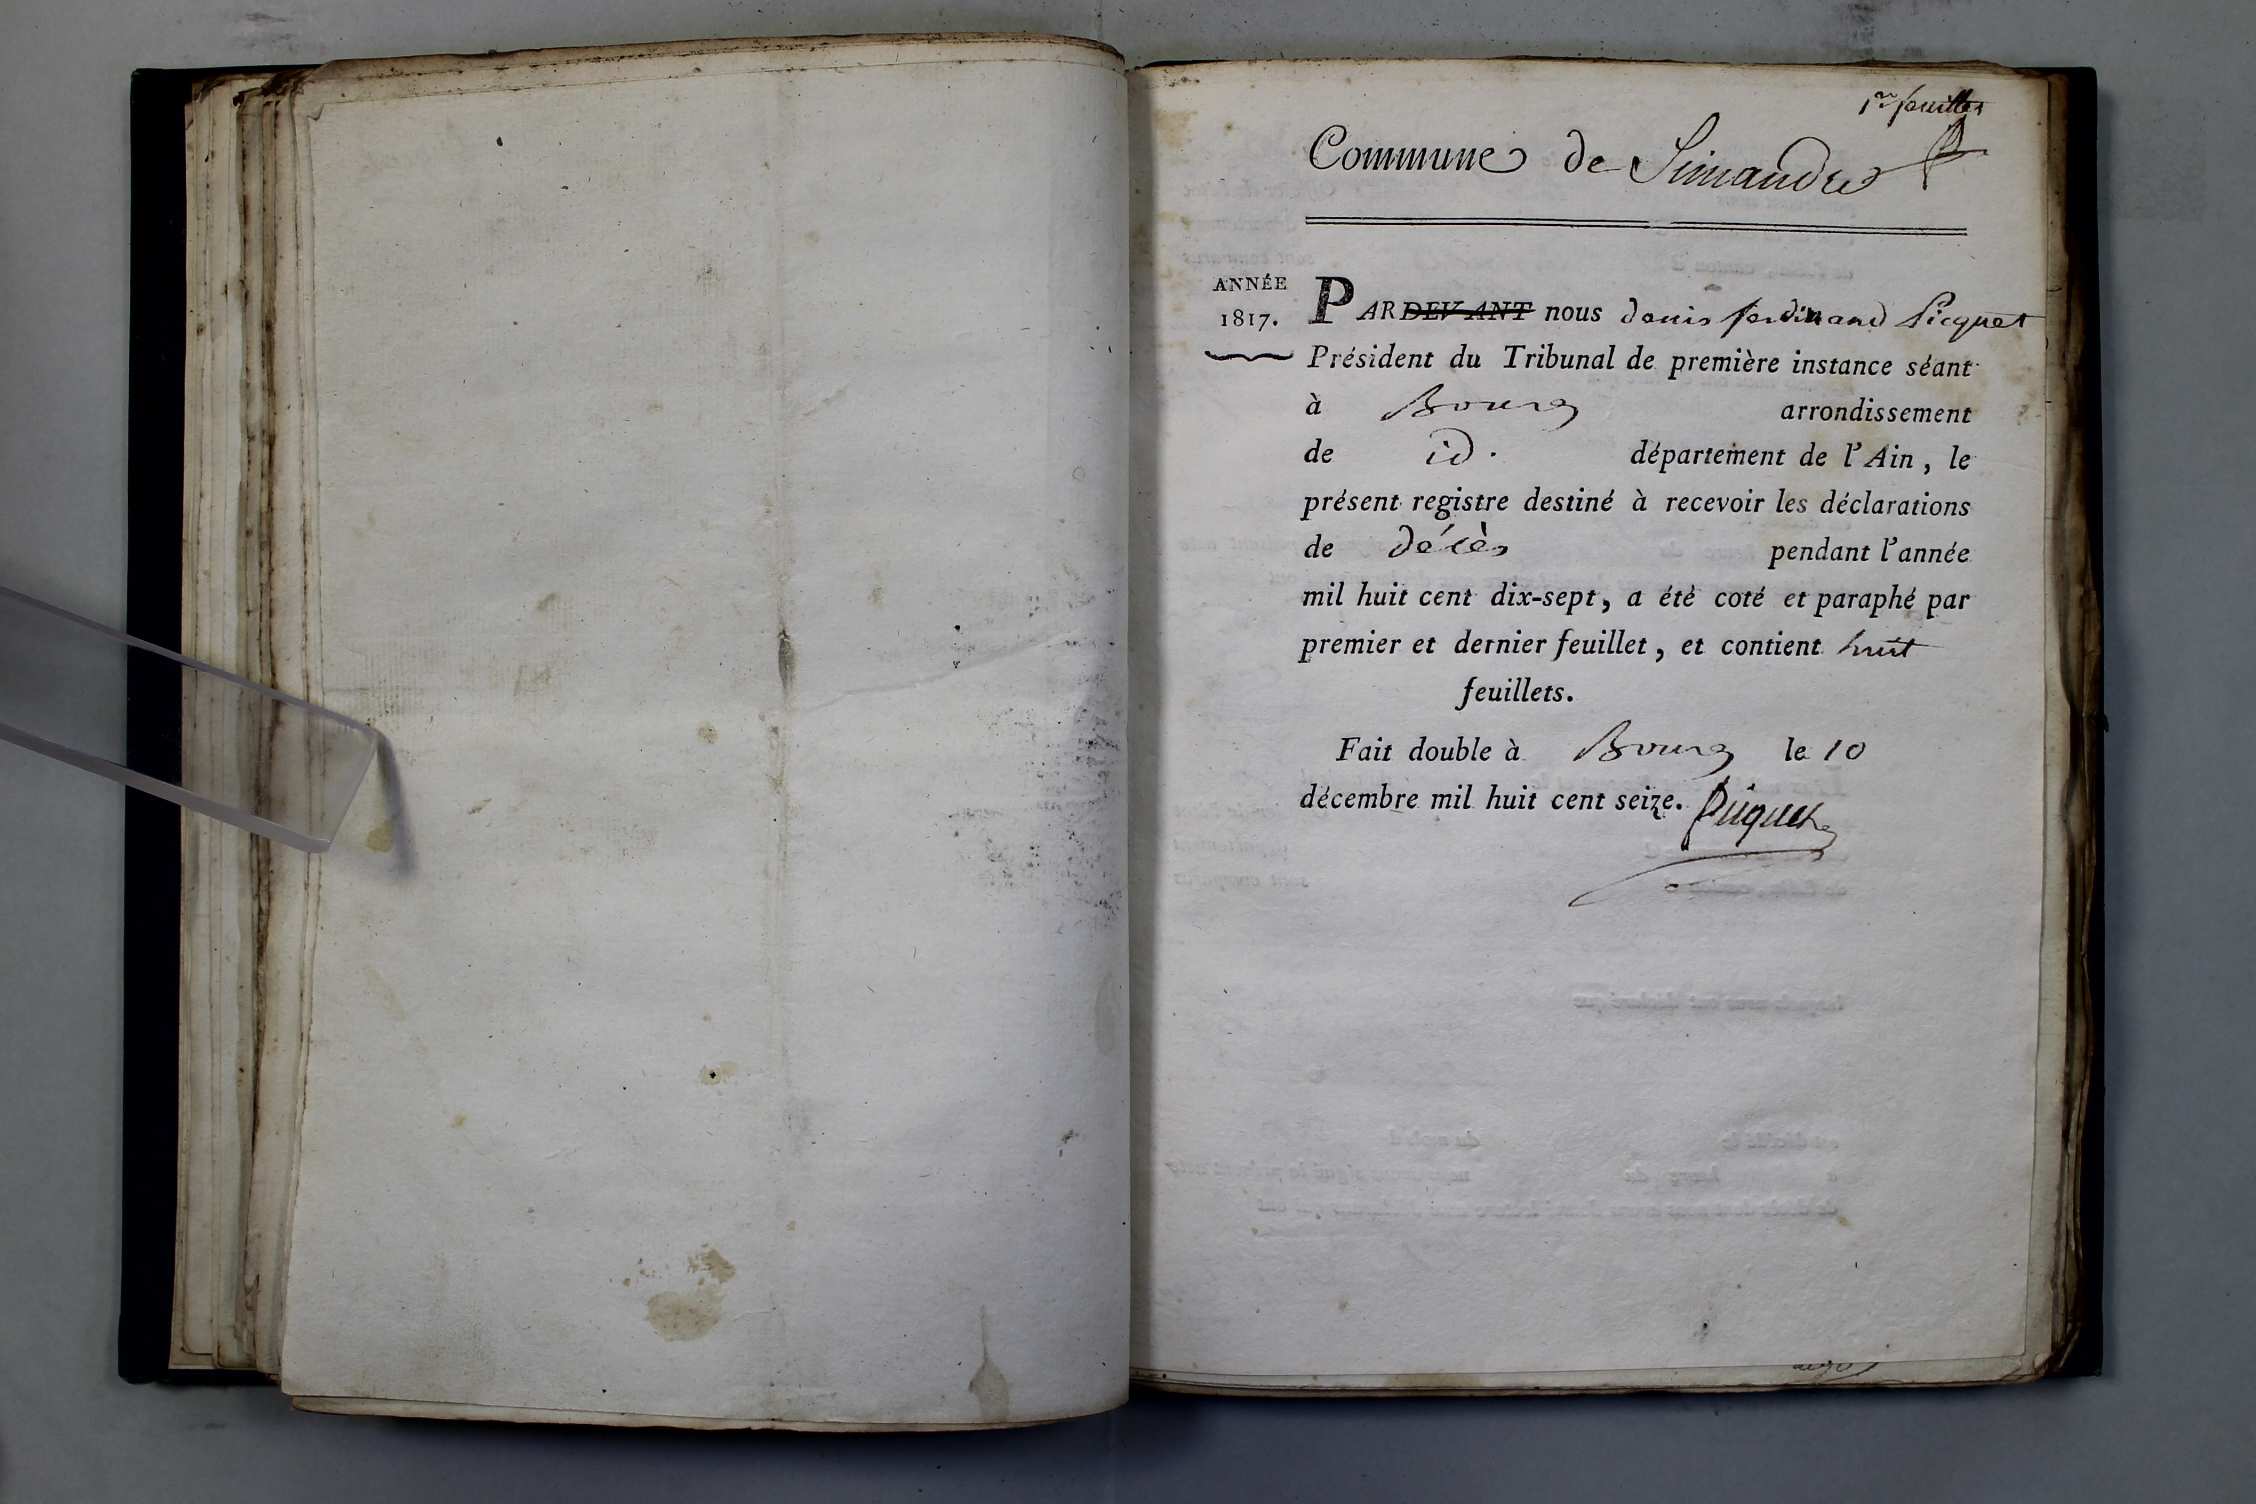 1er feuillet
Commune de Simandre
ANNÉE
1817.
PARDEVANT nous denis ferdinand Picquet
Président du Tribunal de première instance séant
à Bourg arrondissement
de id. département de l'Ain, le
présent registre destiné à recevoir les déclarations
de décès pendant l'année
mil huit cent dix-sept, a été coté et paraphé par
premier et dernier feuillet, et contient huit
feuillets.
Fait double à Bourg le 10
décembre mil huit cent seize. Picquet